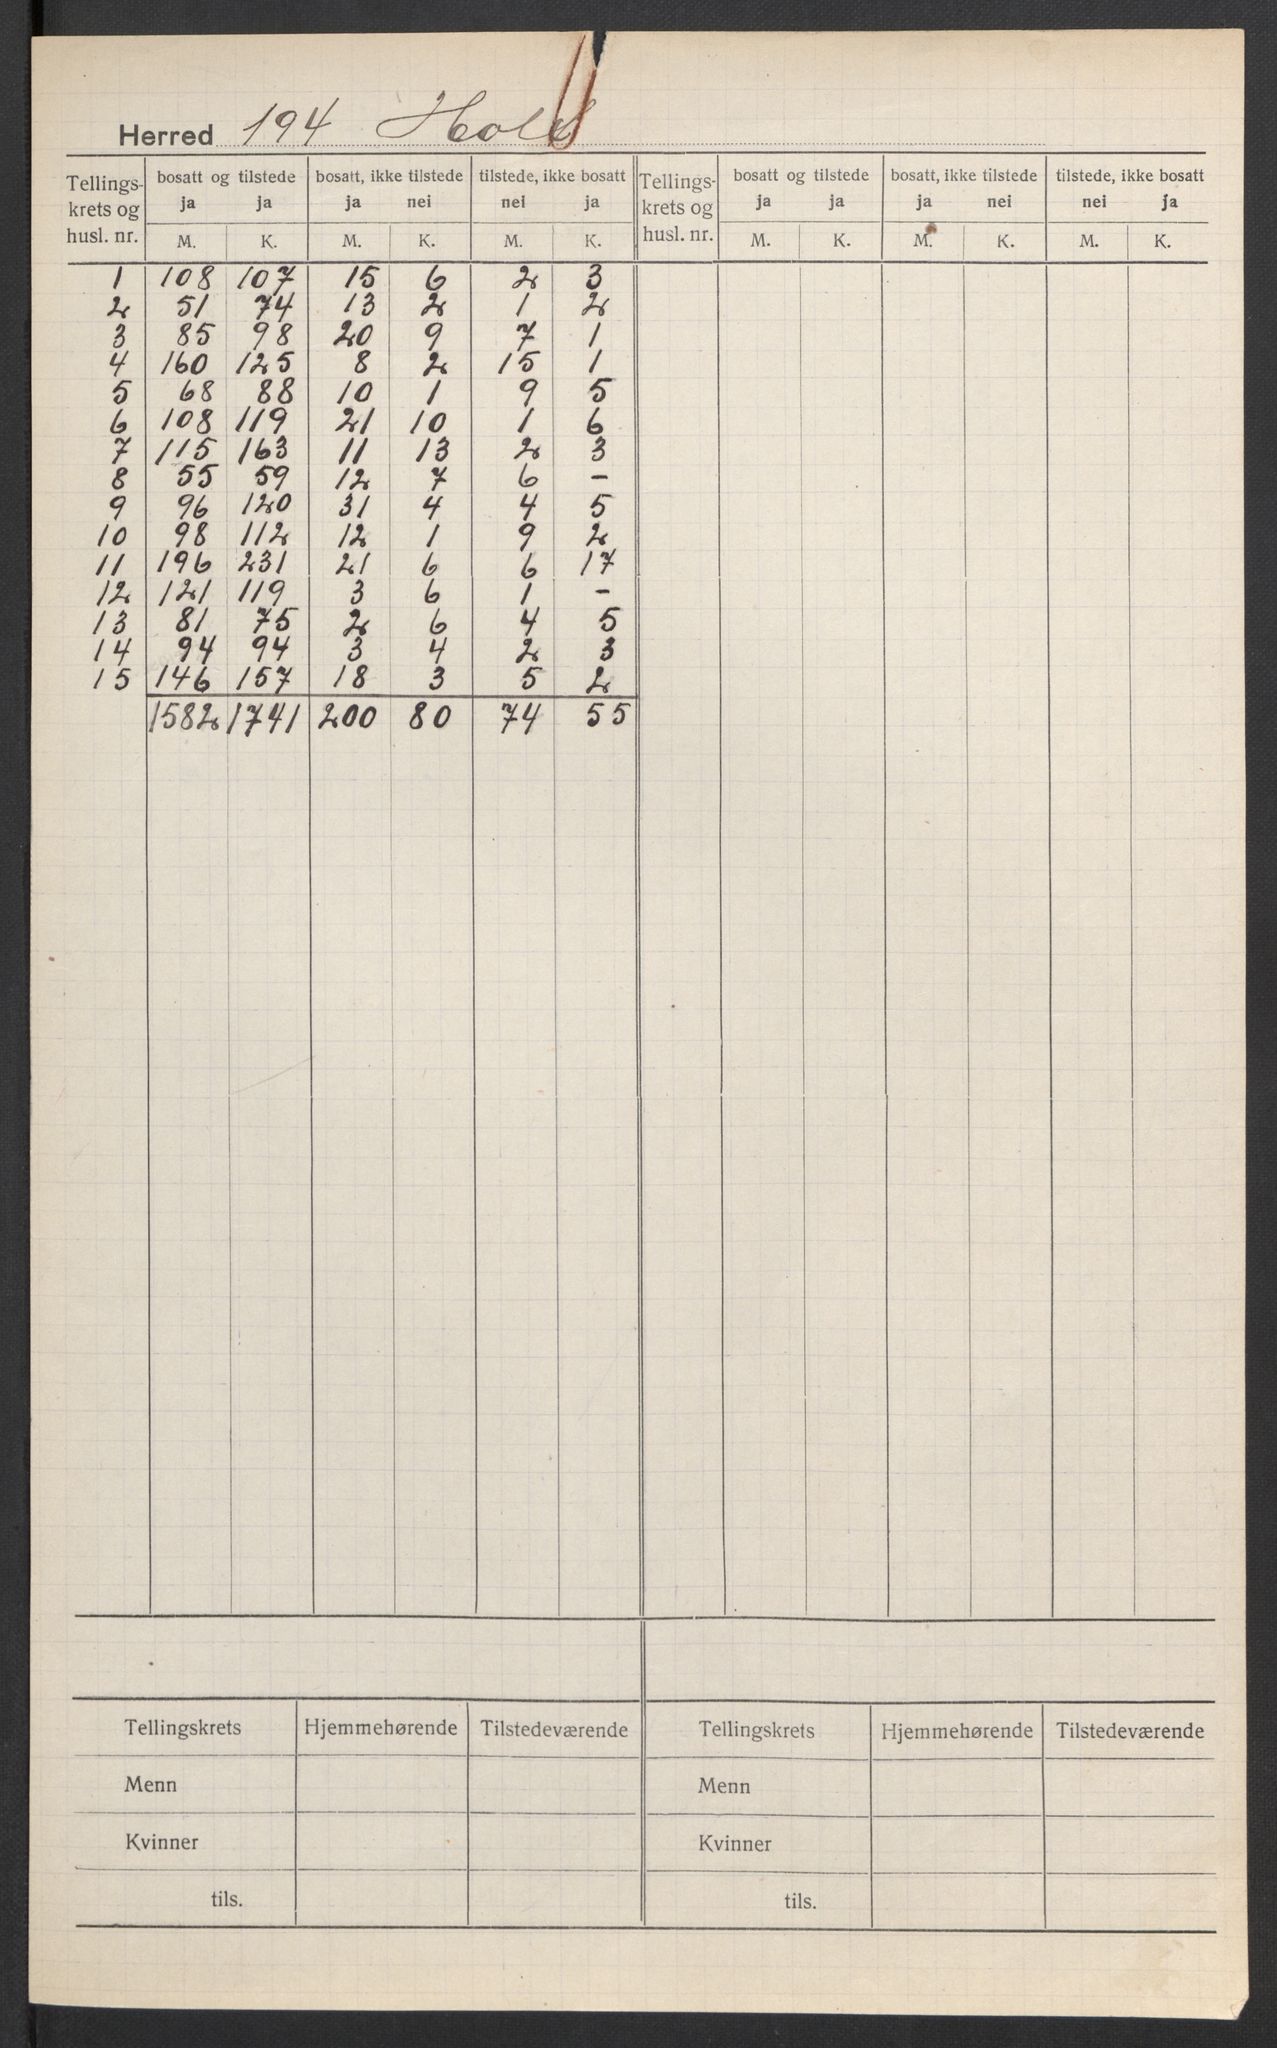 Herred 194 Hole
Tellings-krets og husl. nr. | bosatt og tilstede ja ja | bosatt, ikke tilstede ja nei | tilstede, ikke bosatt nei ja | Tellings-krets og husl. nr. | bosatt og tilstede ja ja | bosatt, ikke tilstede ja nei | tilstede, ikke bosatt nei ja
M. K. M. K. M. K. M. K. M. K. M. K.
1 108 107 15 6 2 3
2 51 74 13 2 1 2
3 85 98 20 9 7 1
4 160 125 8 2 15 1
5 68 88 10 1 9 5
6 108 119 21 10 1 6
7 115 163 11 13 2 3
8 55 59 12 7 6 –
9 96 120 31 4 4 5
10 98 112 12 1 9 2
11 196 231 21 6 6 17
12 121 119 3 6 1 –
13 81 75 2 6 4 5
14 94 94 3 4 2 3
15 146 157 18 3 5 2
1582 1741 200 80 74 55
Tellingskrets Hjemmehørende Tilstedeværende Tellingskrets Hjemmehørende Tilstedeværende
Menn Menn
Kvinner Kvinner
tils. tils.